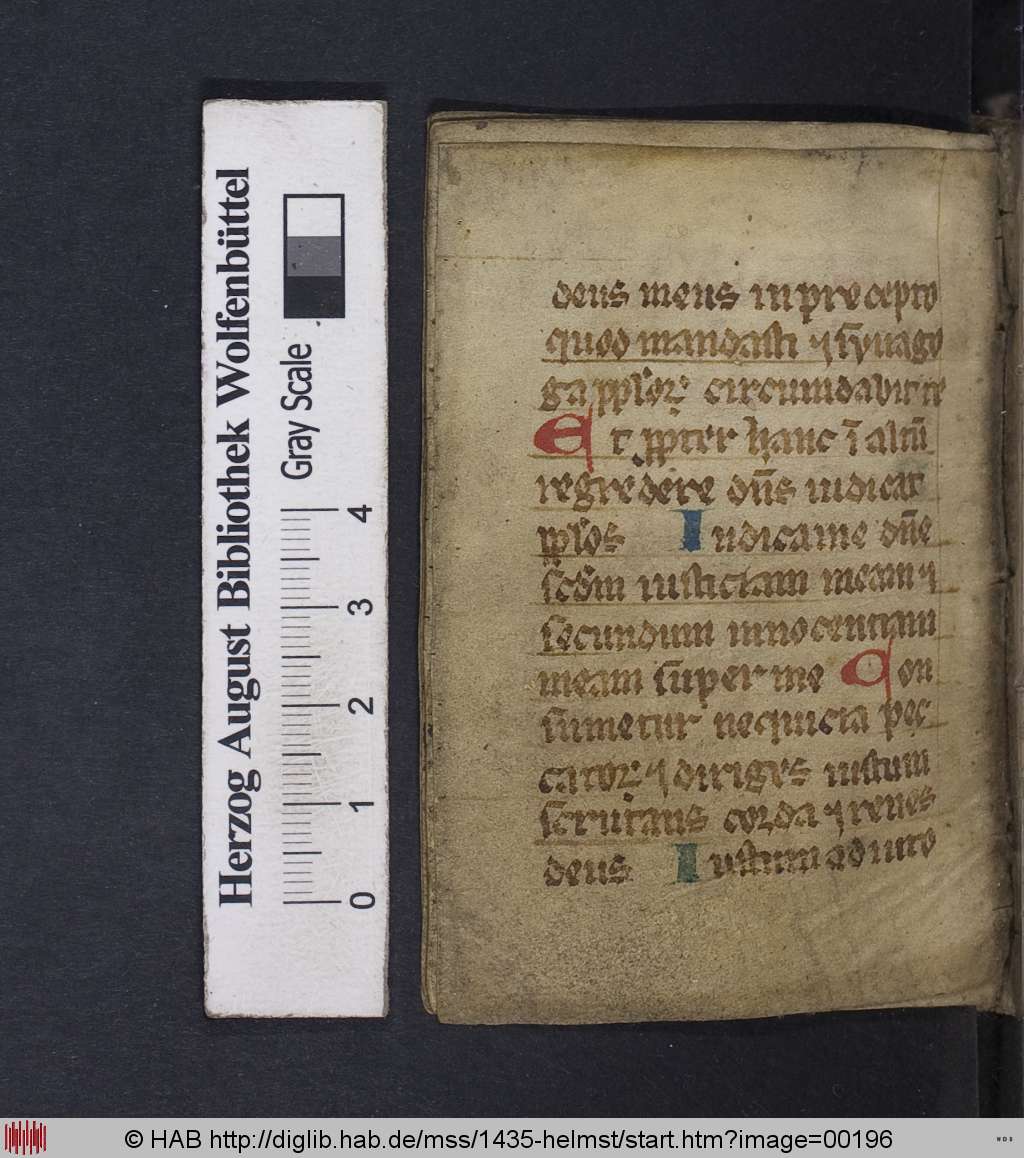 Herzog August Bibliothek Wolfenbüttel
Gray Scale
0 1 2 3 4
deus meus in precepto
quod mandasti ⁊ synago
ga pplo⁊ circumdabit te
Et ꝓpter hanc ī altū
regredere dn̄s iudicat
pplos Iudica me dn̄e
scdm iusticiam meam ⁊
secundum innocentiam
meam super me Con
sumetur nequicia pec
cator⁊ ⁊ diriges iustum
scrutans corda ⁊ renes
deus Iustum adiuto
© HAB http://diglib.hab.de/mss/1435-helmst/start.htm?image=00196